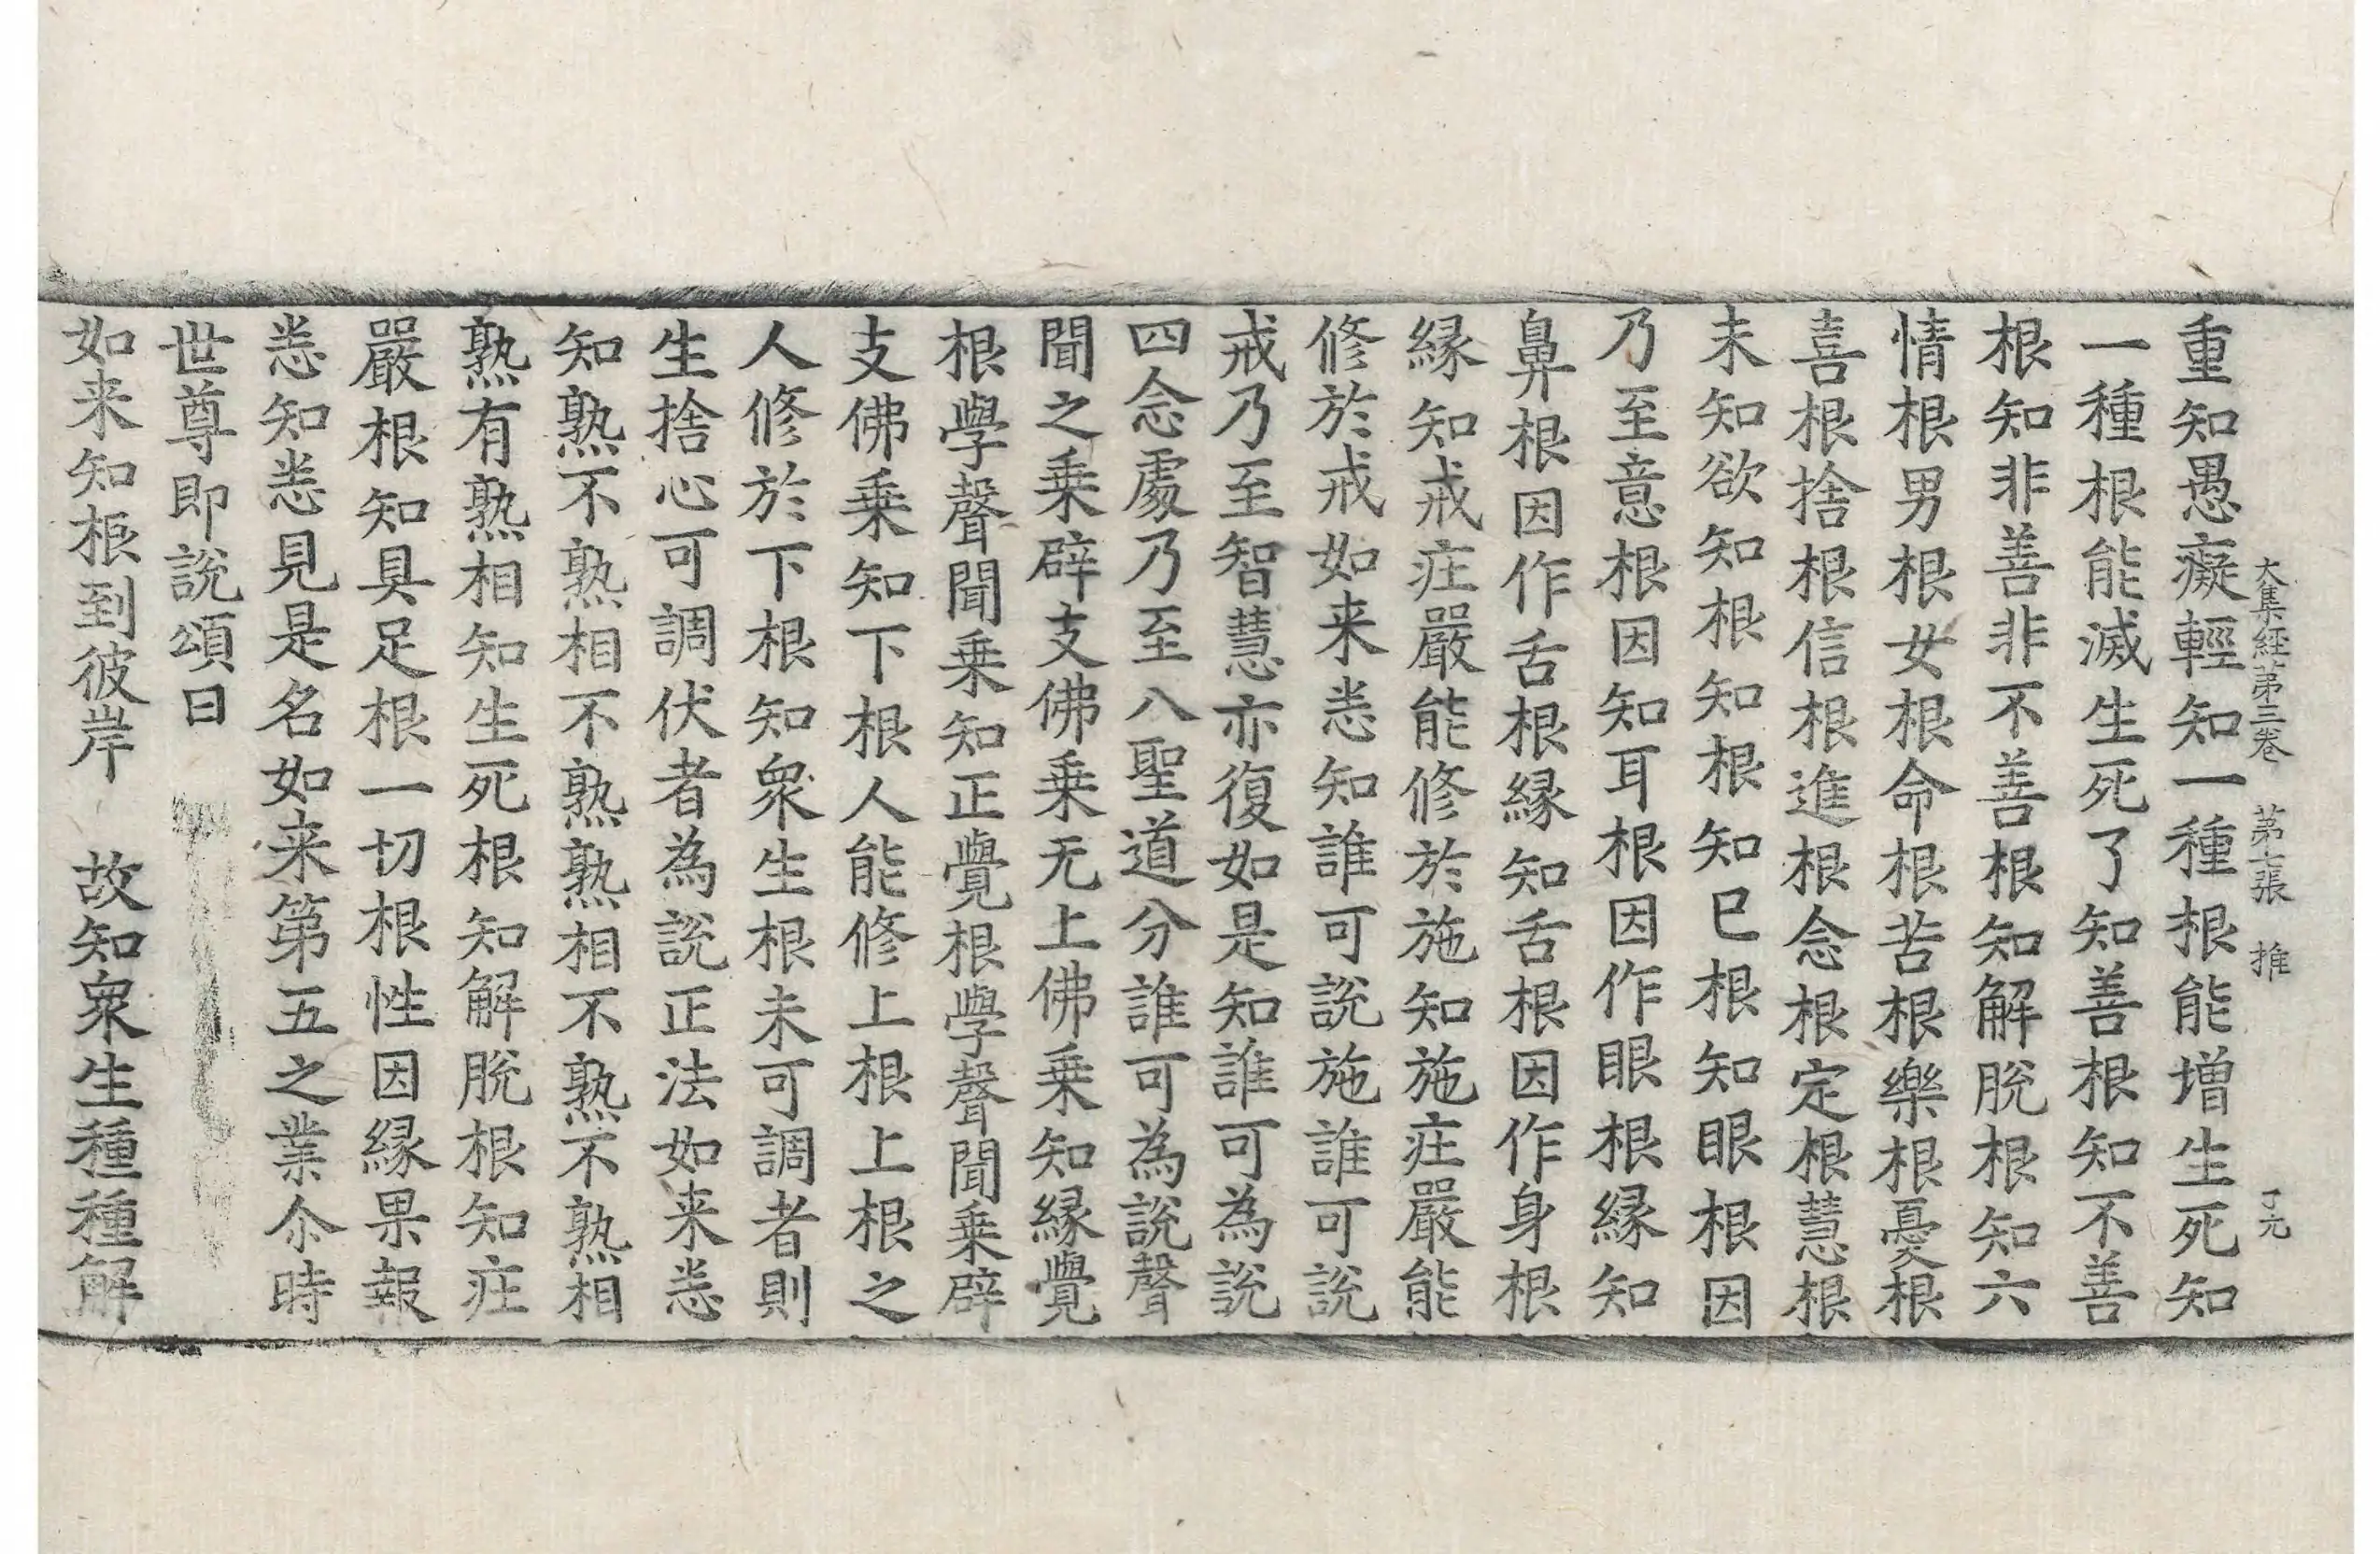 大集経苐三卷 苐七張 推 丁元
重知愚癡輕知一種根能增生死知
一種根能滅生死了知善根知不善
根知非善非不善根知解脫根知六
情根男根女根命根苦根樂根憂根
喜根捨根信根進根念根定根慧根
未知欲知根知根知已根知眼根因
乃至意根因知耳根因作眼根緣知
鼻根因作舌根緣知舌根因作身根
緣知戒庄嚴能修於施知施庄嚴能
修於戒如来悉知誰可說施誰可說
戒乃至智慧亦復如是知誰可為說
四念處乃至八聖道分誰可為說聲
聞之乗辟支佛乗无上佛乗知緣覺
根學聲聞乗知正覺根學聲聞乗辟
支佛乗知下根人能修上根上根之
人修於下根知衆生根未可調者則
生捨心可調伏者為說正法如来悉
知熟不熟相不熟熟相不熟不熟相
熟有熟相知生死根知解脫根知庄
嚴根知具足根一切根性因緣果報
悉知悉見是名如来第五之業尒時
世尊即說頌曰
如来知根到彼岸 故知衆生種種解